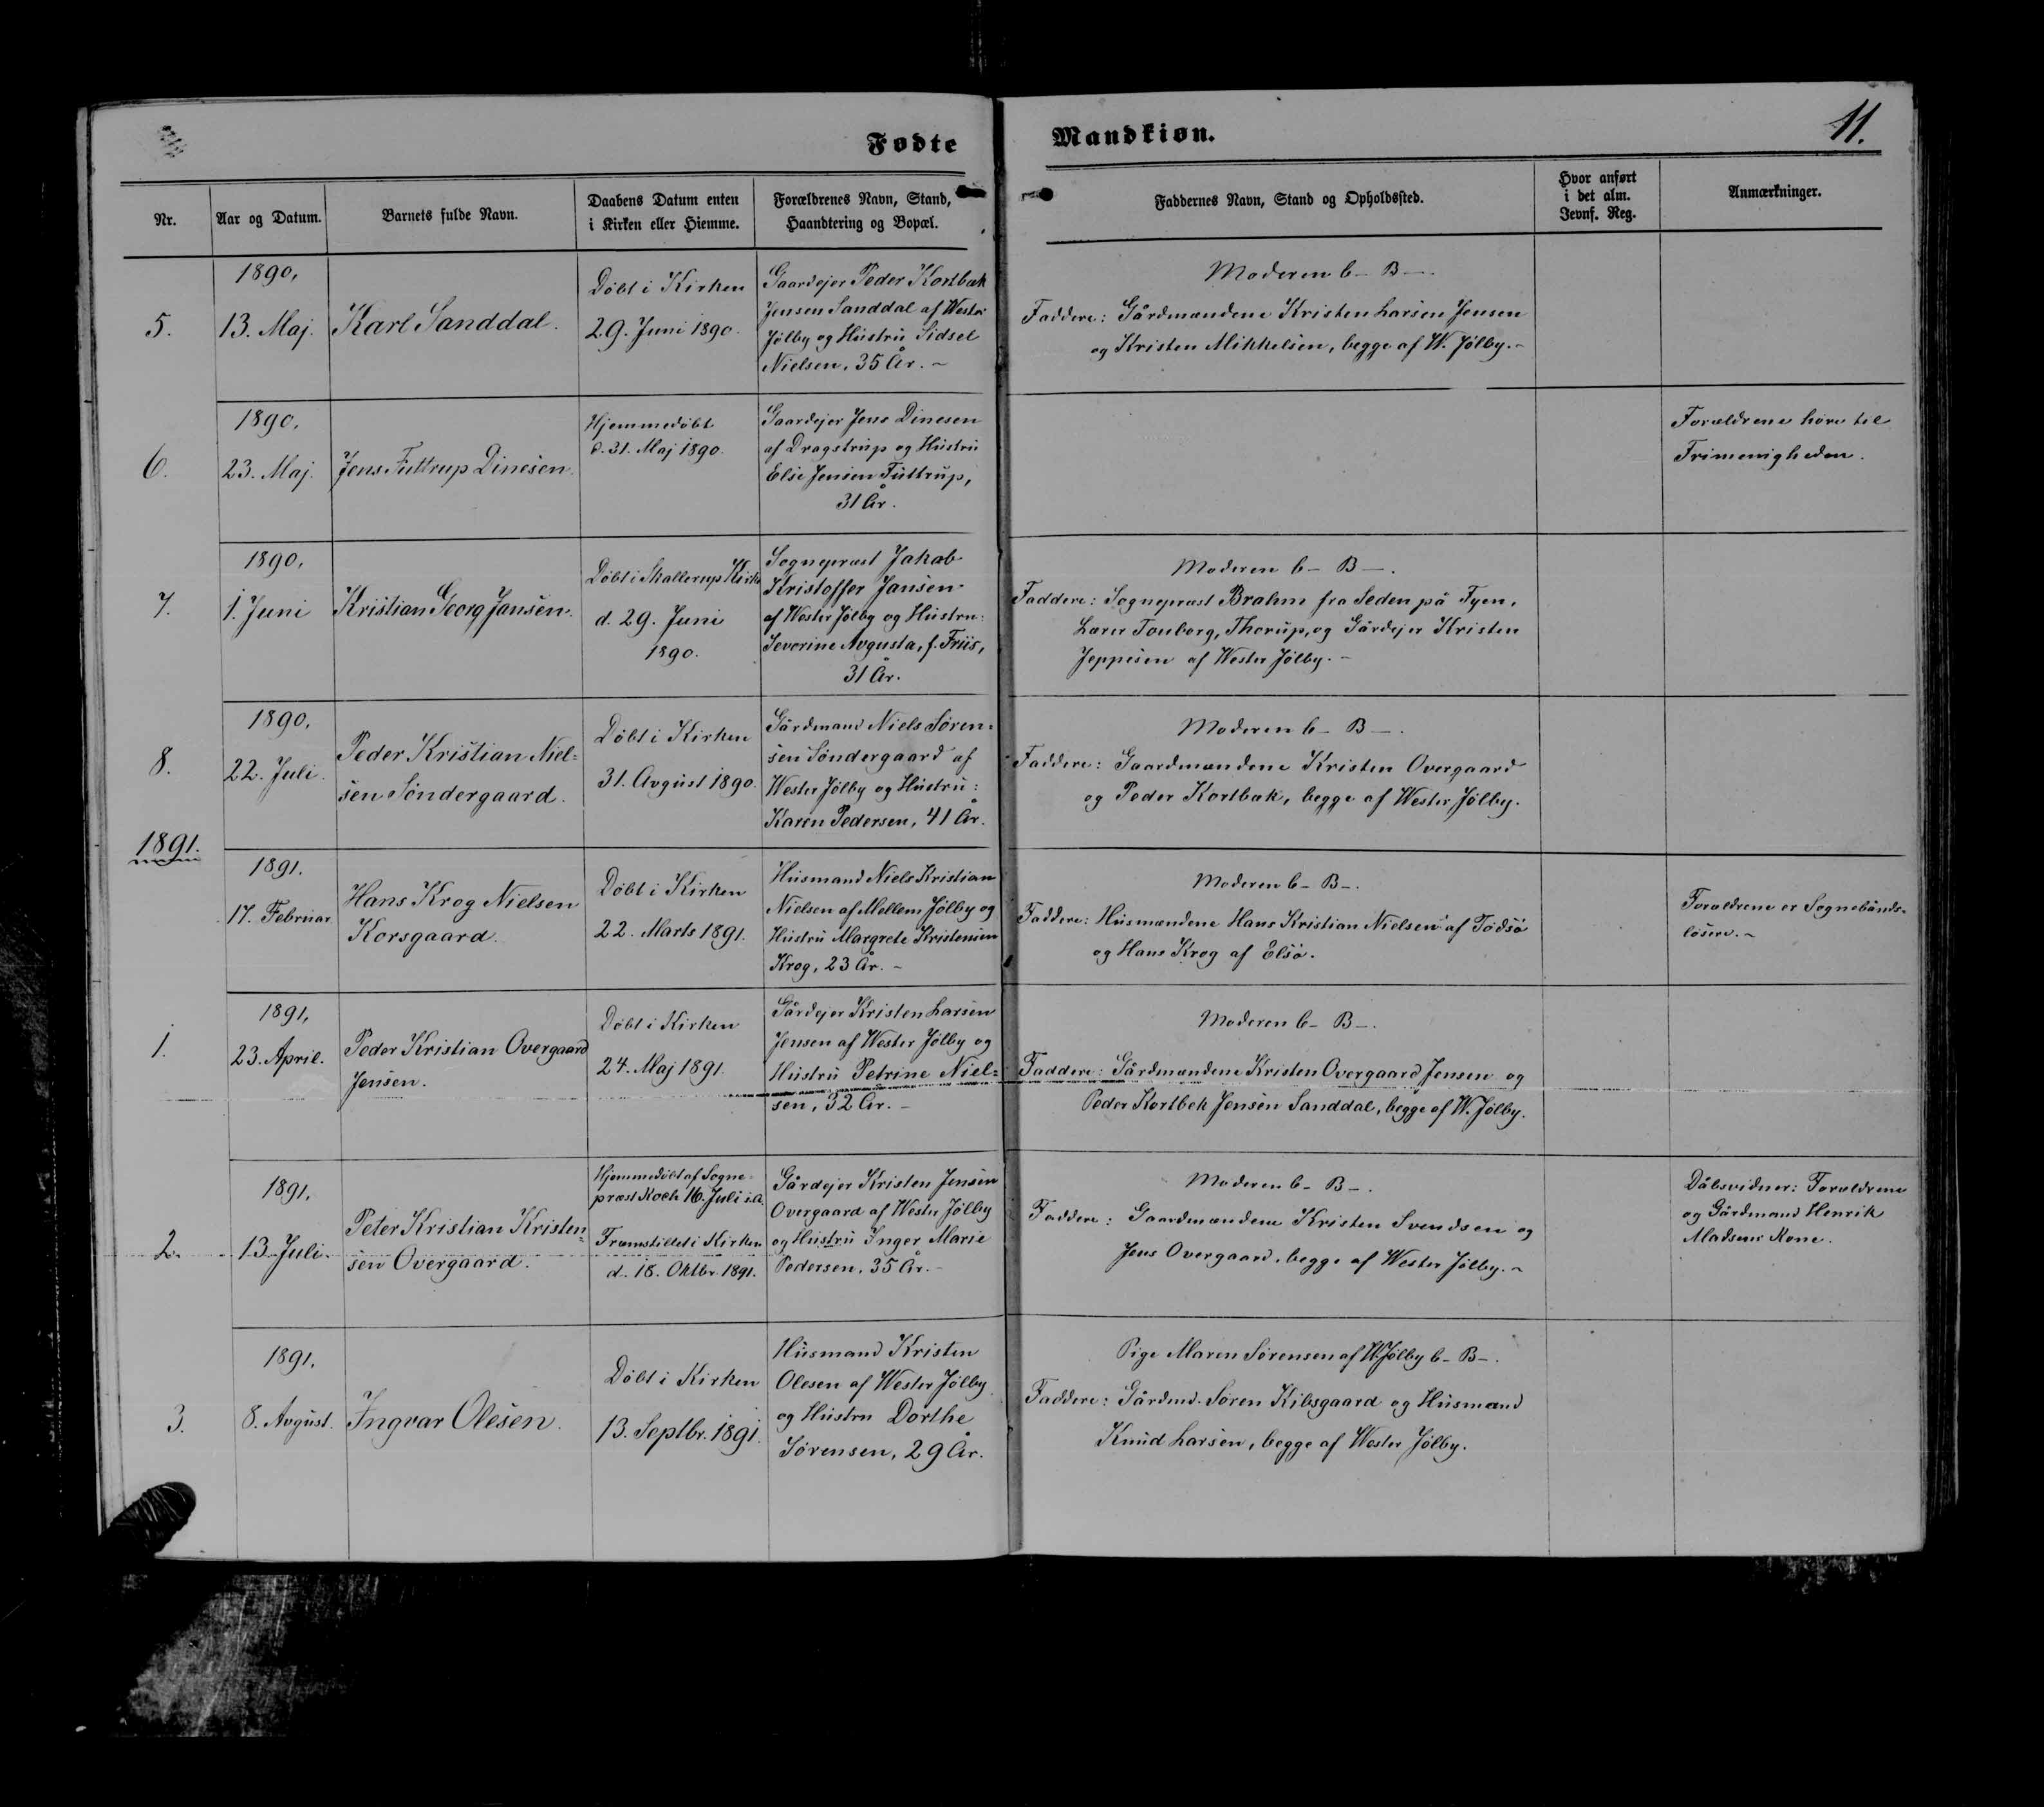 Fødte Mandkiøn.
11.
Nr.
Aar og Datum.
Barnets fulde Navn.
Daabens Datum enten
i Kirken eller Hiemme.
Forældrenes Navn, Stand,
Haandtering og Bopæl.
Faddernes Navn, Stand og Opholdssted.
Hvor anført
i det alm.
Jevnf. Reg.
Anmærkninger.
5.
1890,
13. Maj.
Karl Sanddal.
Døbt i Kirken
29. Juni 1890.
Gaardejer Peder Kortbæk
Jensen Sanddal af Wester
Jølby og Hustru Sidsel
Nielsen, 35 År. –
Moderen b– B–.
Faddere: Gårdmændene Kristen Larsen Jensen
og Kristen Mikkelsen, begge af W. Jølby. –
6.
1890,
23. Maj.
Jens Futtrup Dinesen.
Hjemmedøbt
d. 31. Maj 1890.
Gaardejer Jens Dinesen
af Dragstrup og Hustru
Else Jensen Futtrup,
31 År.
Forældrene høre til
Frimenigheden.
7.
1890,
1. Juni
Kristian Georg Jansen.
Døbt i Skallerup Kirke
d. 29. Juni
1890.
Sognepræst Jakob
Kristoffer Jansen
af Wester Jølby og Hustru:
Severine Avgusta, f. Friis,
31 År.
Moderen b– B–.
Faddere: Sognepræst Brahm fra Seden på Fyen,
Lærer Touborg, Thorup, og Gårdejer Kristen
Jeppesen af Wester Jølby. –
8.
1890,
22. Juli.
Peder Kristian Niel=
sen Søndergaard.
Døbt i Kirken
31. Avgust 1890.
Gårdmand Niels Søren=
sen Søndergaard af
Wester Jølby og Hustru:
Karen Pedersen, 41 År.
Moderen b– B–.
Faddere: Gaardmændene Kristen Overgaard
og Peder Kortbæk, begge af Wester Jølby.
1891.
1891.
17. Februar
Hans Krog Nielsen
Korsgaard.
Døbt i Kirken
22. Marts 1891.
Husmand Niels Kristian
Nielsen af Mellem Jølby og
Hustru Margrete Kristensen
Krog, 23 År. –
Moderen b– B–.
Faddere: Husmændene Hans Kristian Nielsen af Tødsø
og Hans Krog af Elsø.
Forældrene er Sognebånds=
løsere. –
1.
1891,
23. April.
Peder Kristian Overgaard
Jensen.
Døbt i Kirken
24. Maj 1891.
Gårdejer Kristen Larsen
Jensen af Wester Jølby og
Hustru Petrine Niel=
sen, 32 År. –
Moderen b– B–.
Faddere: Gårdmændene Kristen Overgaard Jensen og
Peder Kortbek Jensen Sanddal, begge af W. Jølby.
2.
1891,
13. Juli.
Peter Kristian Kristen=
sen Overgaard.
Hjemmedøbt af Sogne=
præst Koch 16. Juli s. A.
Fremstillet i Kirken
d. 18. Oktbr. 1891.
Gårdejer Kristen Jensen
Overgaard af Wester Jølby
og Hustru Inger Marie
Pedersen, 35 År. –
Moderen b– B–.
Faddere: Gaardmændene Kristen Svendsen og
Jens Overgaard, begge af Wester Jølby. –
Dåbsvidner: Forældrene
og Gårdmand Henrik
Madsens Kone.
3.
1891,
8. Avgust.
Ingvar Olesen.
Døbt i Kirken
13. Septbr. 1891.
Husmand Kristen
Olesen af Wester Jølby
og Hustru Dorthe
Sørensen, 29 År.
Pige Maren Sørensen af W. Jølby b– B–.
Faddere: Gårdmd. Søren Kibsgaard og Husmænd
Knud Larsen, begge af Wester Jølby.